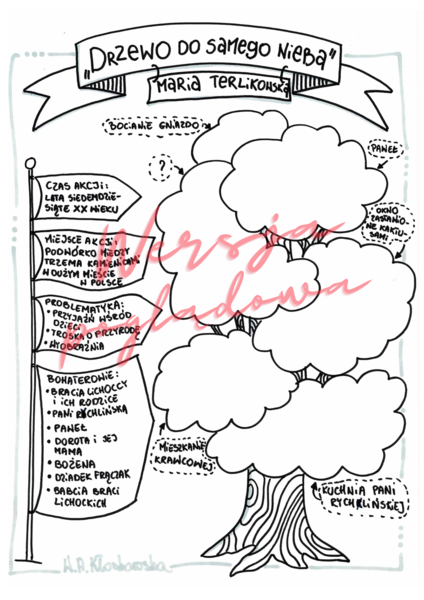 „DRZEWO DO SAMEGO NIEBA”
MARIA TERLIKOWSKA
BOCIANIE GNIAZDO
?
PAWEŁ
OKNO
ZASTAWIO-
NE KAKTU-
SAMI
CZAS AKCJI:
LATA SIEDEMDZIE-
SIĄTE XX WIEKU
MIEJSCE AKCJI:
PODWÓRKO MIĘDZY
TRZEMA KAMIENICAMI
W DUŻYM MIEŚCIE
W POLSCE
PROBLEMATYKA:
• PRZYJAŹŃ WŚRÓD
DZIECI
• TROSKA O PRZYRODĘ
• WYOBRAŹNIA
BOHATEROWIE:
• BRACIA LICHOCCY
I ICH RODZICE
• PANI RYCHLIŃSKA
• PAWEŁ
• DOROTA I JEJ
MAMA
• BOŻENA
• DZIADEK FRĄCZAK
• BABCIA BRACI
LICHOCKICH
MIESZKANIE
KRAWCOWEJ
KUCHNIA PANI
RYCHLIŃSKIEJ
Wersja
poglądowa